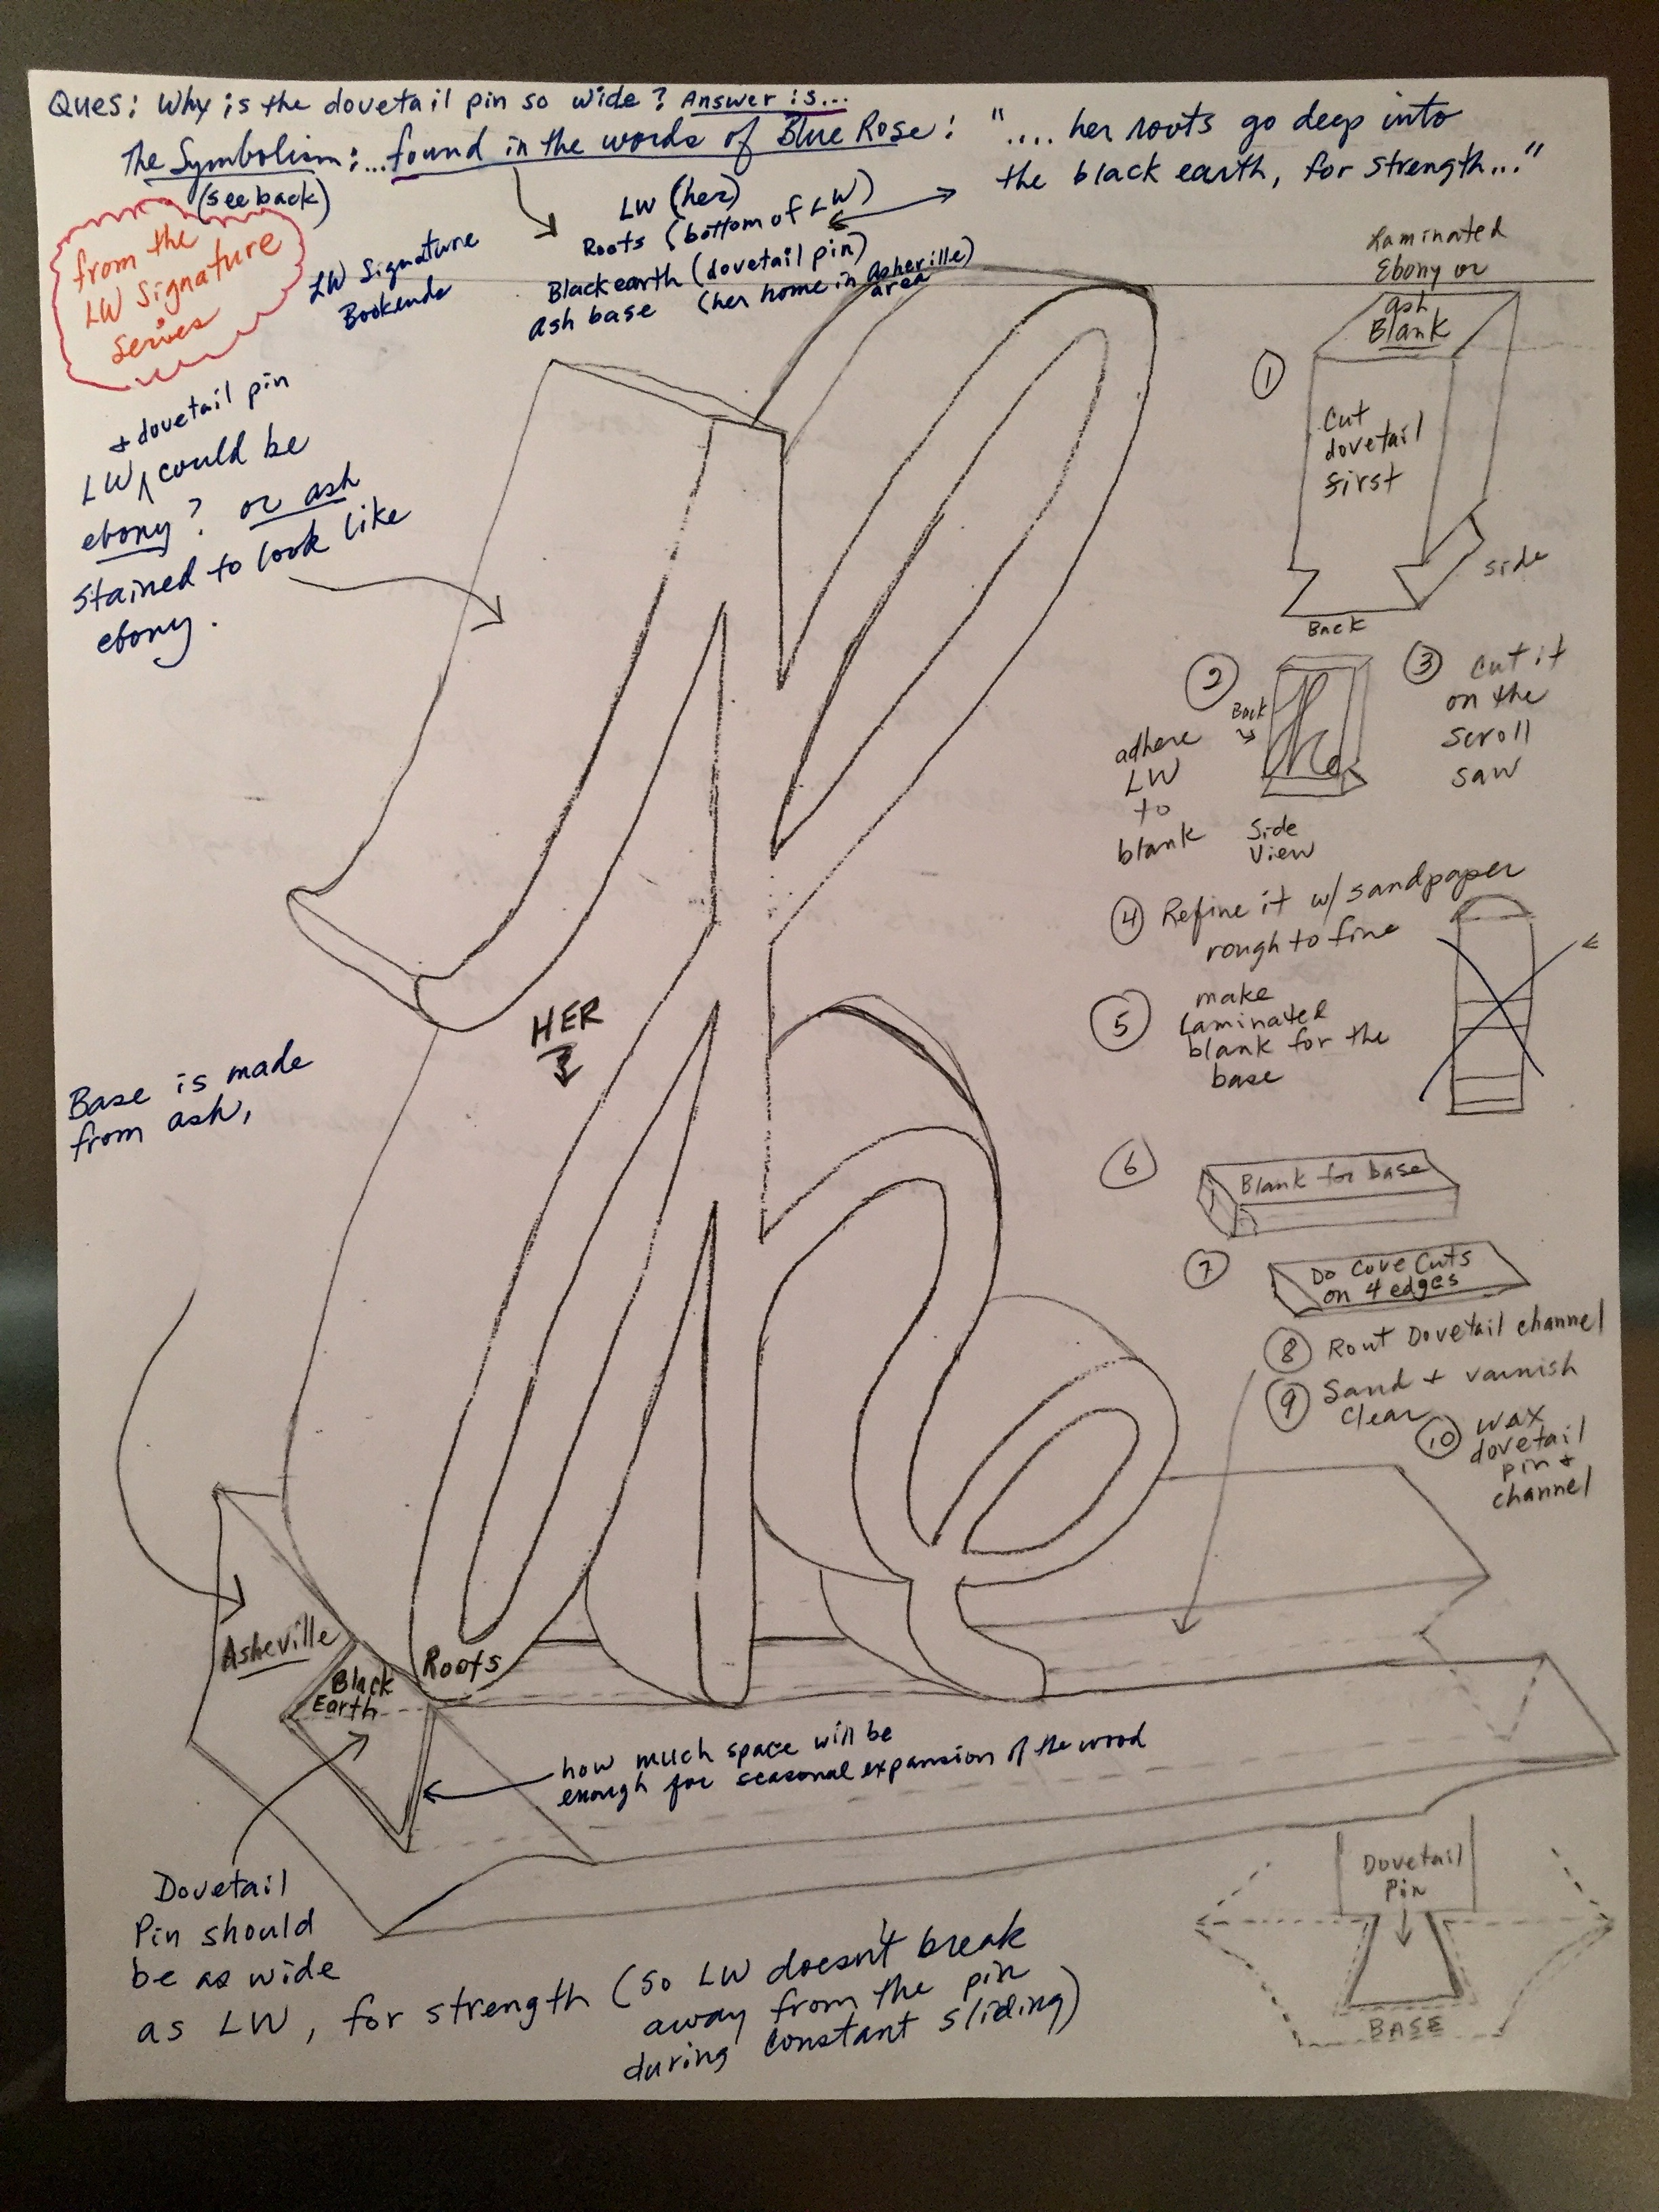 Ques: Why is the dovetail pin so wide? Answer is...
The Symbolism:...found in the words of Blue Rose: "....her roots go deep into
the black earth, for strength..."
(see back)
from the
LW Signature
Series
LW Signature
Bookends
LW (her)
Roots (bottom of LW)
Black earth (dovetail pin)
Ash base (her home in Asheville)
area
+ dovetail pin
LW ^ could be
ebony? or ash
stained to look like
ebony.
HER
Base is made
from ash,
Asheville
Black
Earth
Roots
how much space will be
enough for seasonal expansion of the wood
Dovetail
Pin should
be as wide
as LW, for strength (so LW doesn't break
away from the pin
during constant sliding)
Laminated
Ebony or
ash
Blank
1
Cut
dovetail
first
side
Back
2
Back
adhere
LW
to
blank
Side
View
3 Cut it
on the
scroll
saw
4 Refine it w/ sandpaper
rough to fine
5 make
Laminated
blank for the
base
6
Blank for base
7
Do Cove Cuts
on 4 edges
8 Rout Dovetail channel
9 Sand + varnish
clear
10 wax
dovetail
pin +
channel
Dovetail
Pin
BASE